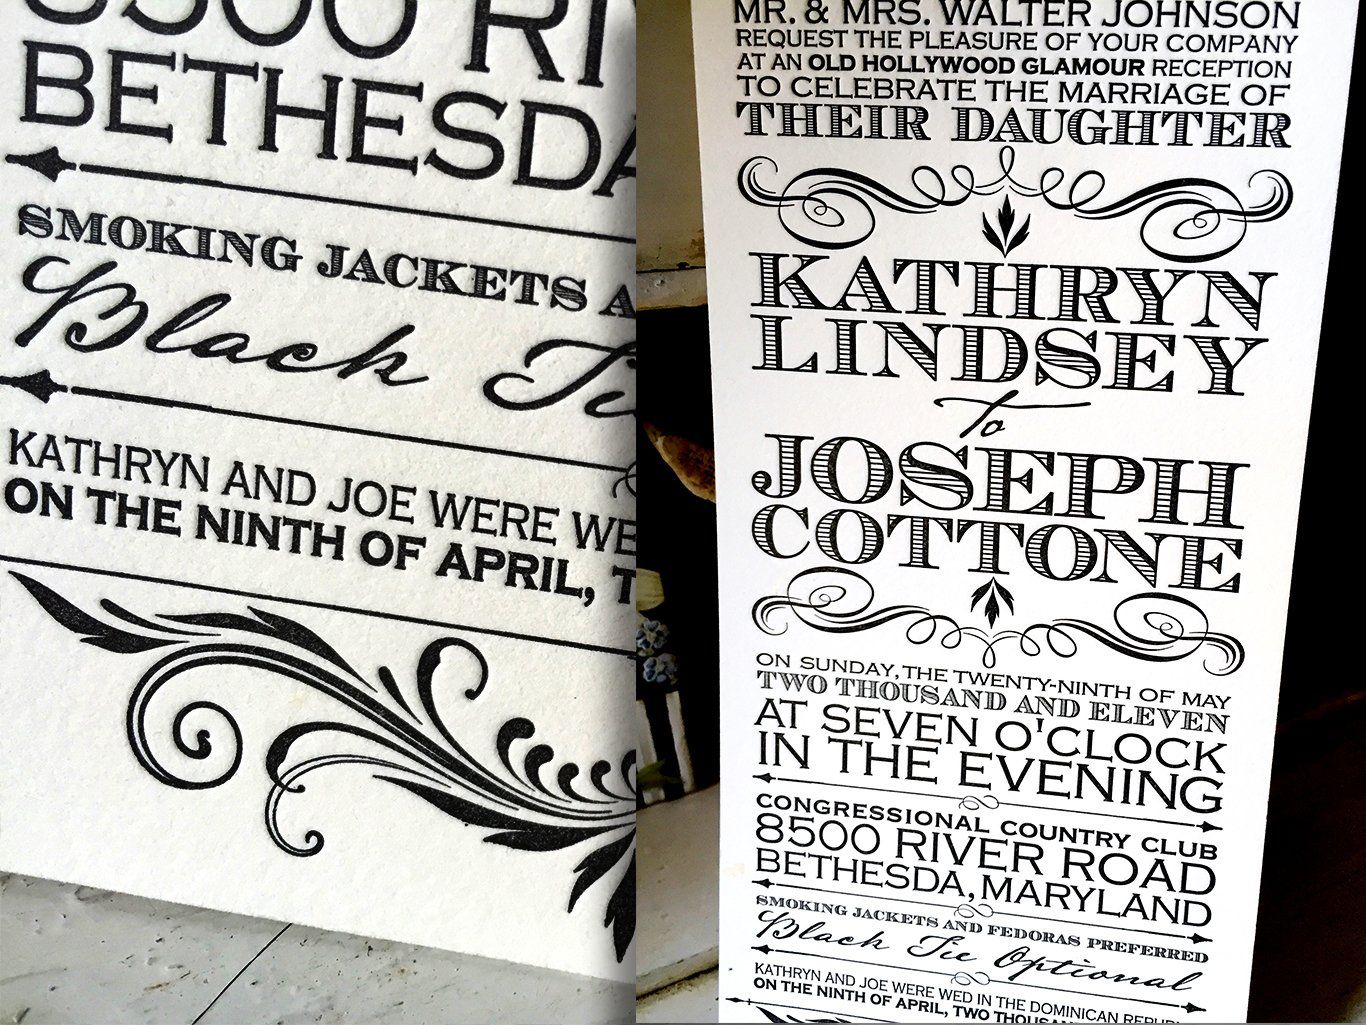 8500 RI
BETHESDA
SMOKING JACKETS A
Black Tie
KATHRYN AND JOE WERE WE
ON THE NINTH OF APRIL, T
MR. & MRS. WALTER JOHNSON
REQUEST THE PLEASURE OF YOUR COMPANY
AT AN OLD HOLLYWOOD GLAMOUR RECEPTION
TO CELEBRATE THE MARRIAGE OF
THEIR DAUGHTER
KATHRYN
LINDSEY
to
JOSEPH
COTTONE
ON SUNDAY, THE TWENTY-NINTH OF MAY
TWO THOUSAND AND ELEVEN
AT SEVEN O'CLOCK
IN THE EVENING
CONGRESSIONAL COUNTRY CLUB
8500 RIVER ROAD
BETHESDA, MARYLAND
SMOKING JACKETS AND FEDORAS PREFERRED
Black Tie Optional
KATHRYN AND JOE WERE WED IN THE DOMINICAN REPUB
ON THE NINTH OF APRIL, TWO THOUSAN